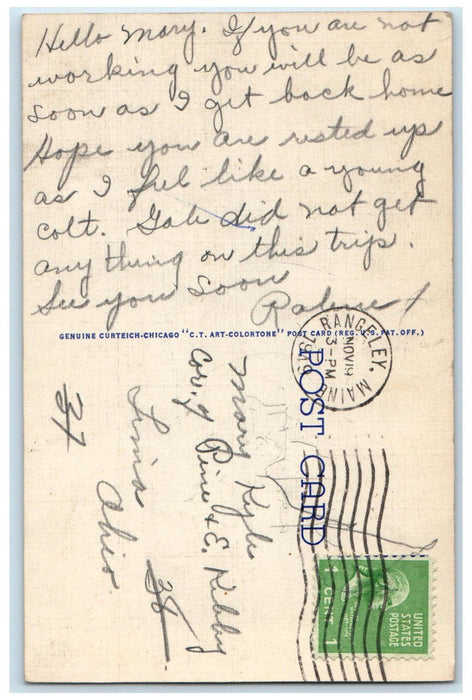 Hello Mary. If you are not
working you will be as
soon as I get back home
Hope you are rested up
as I feel like a young
colt. Gale did not get
any thing on this trip.
See you soon
GENUINE CURTEICH-CHICAGO "C.T. ART-COLORTONE" POST CARD (REG. U.S. PAT. OFF.)
RANGELEY, MAINE
NOV 19
3-PM
POST CARD
Mary Kyle
Cor. of Pine & E. Kibby
Lima
Ohio
34
38
UNITED
STATES
POSTAGE
1 CENT 1